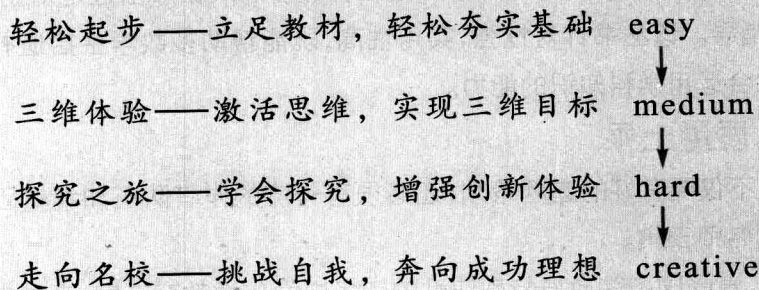 轻松起步——立足教材，轻松夯实基础 easy
三维体验——激活思维，实现三维目标 medium
探究之旅——学会探究，增强创新体验 hard
走向名校——挑战自我，奔向成功理想 creative